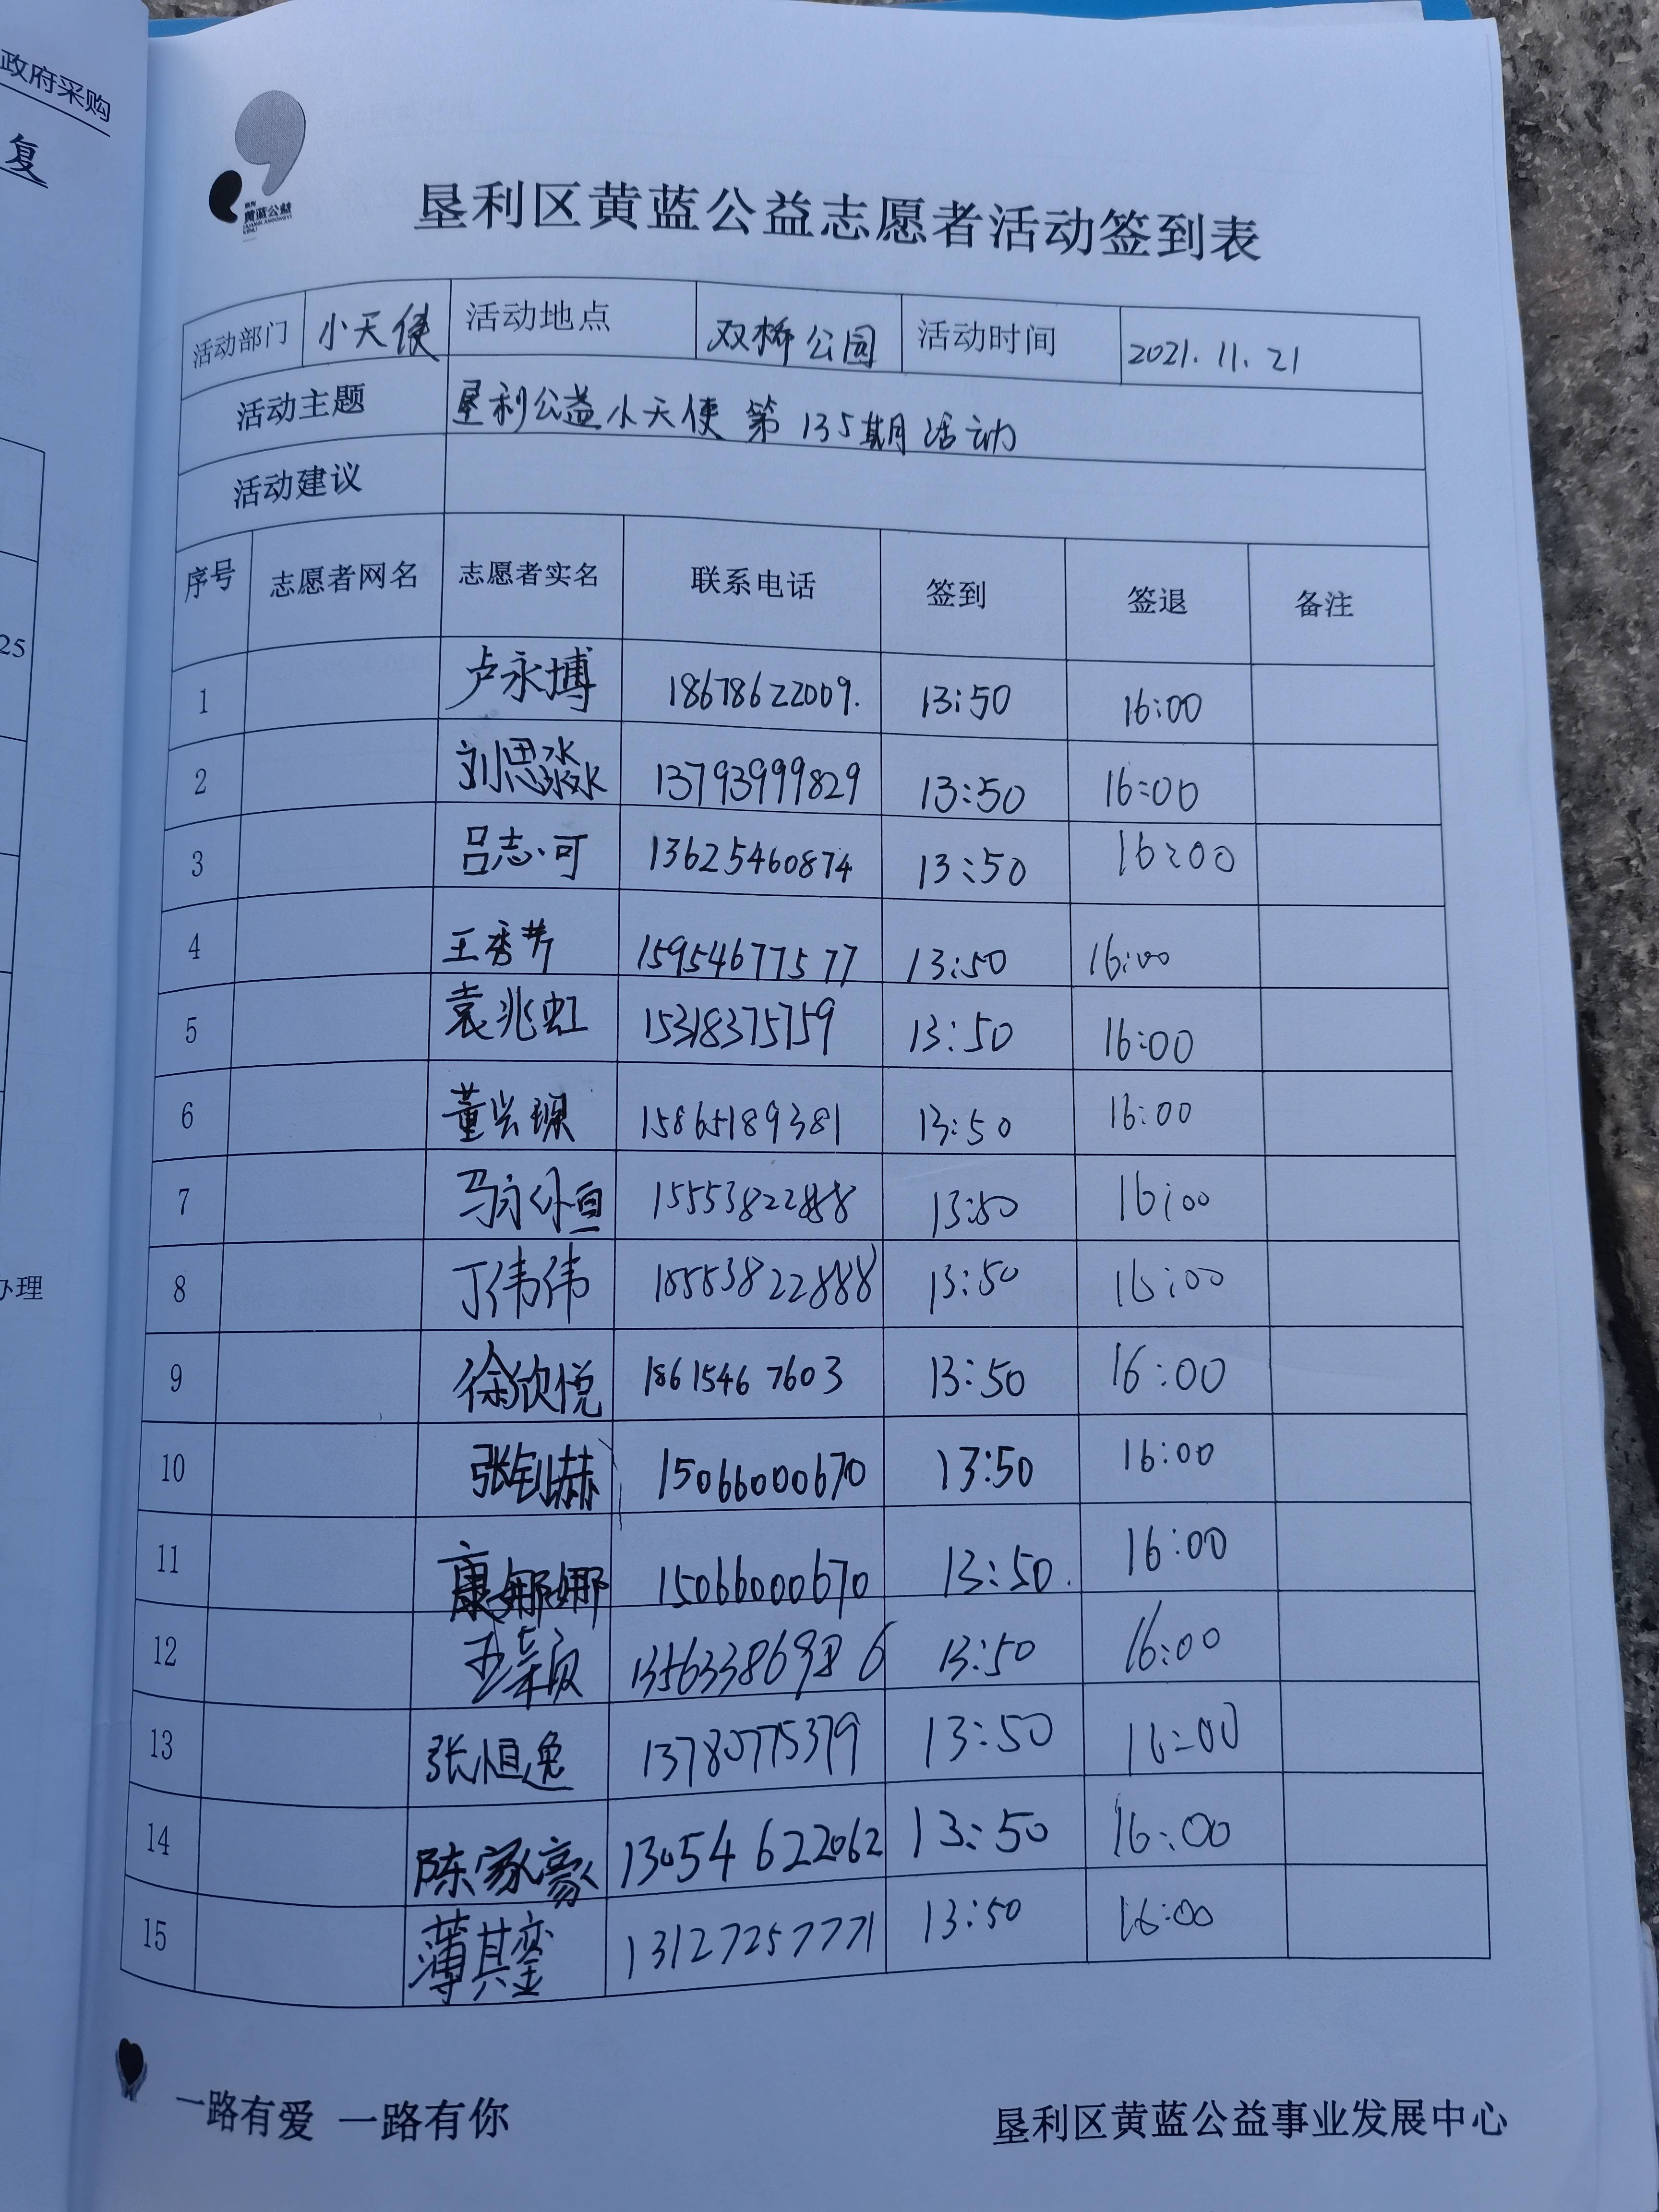 政府采购
复
25
办理
黄蓝公益
垦利区黄蓝公益志愿者活动签到表
活动部门 小天使 活动地点 双桥公园 活动时间 2021.11.21
活动主题 垦利公益小天使 第135期活动
活动建议
序号 志愿者网名 志愿者实名 联系电话 签到 签退 备注
1 卢永博 18678622009. 13:50 16:00
2 刘思淼 13793999829 13:50 16:00
3 吕志可 13625460874 13:50 16:00
4 王秀芹 15954677577 13:50 16:00
5 袁兆虹 15318375759 13:50 16:00
6 董 15865189381 13:50 16:00
7 马 15553822888 13:50 16:00
8 丁伟伟 18553822888 13:50 16:00
9 徐欣悦 18615467603 13:50 16:00
10 张钊赫 15066000670 13:50 16:00
11 康娜娜 15066000670 13:50. 16:00
12 13:50 16:00
13 张恒逸 13780775379 13:50 16:00
14 陈家豪 13054622062 13:50 16:00
15 薄其銮 13127257771 13:50 16:00
一路有爱 一路有你
垦利区黄蓝公益事业发展中心